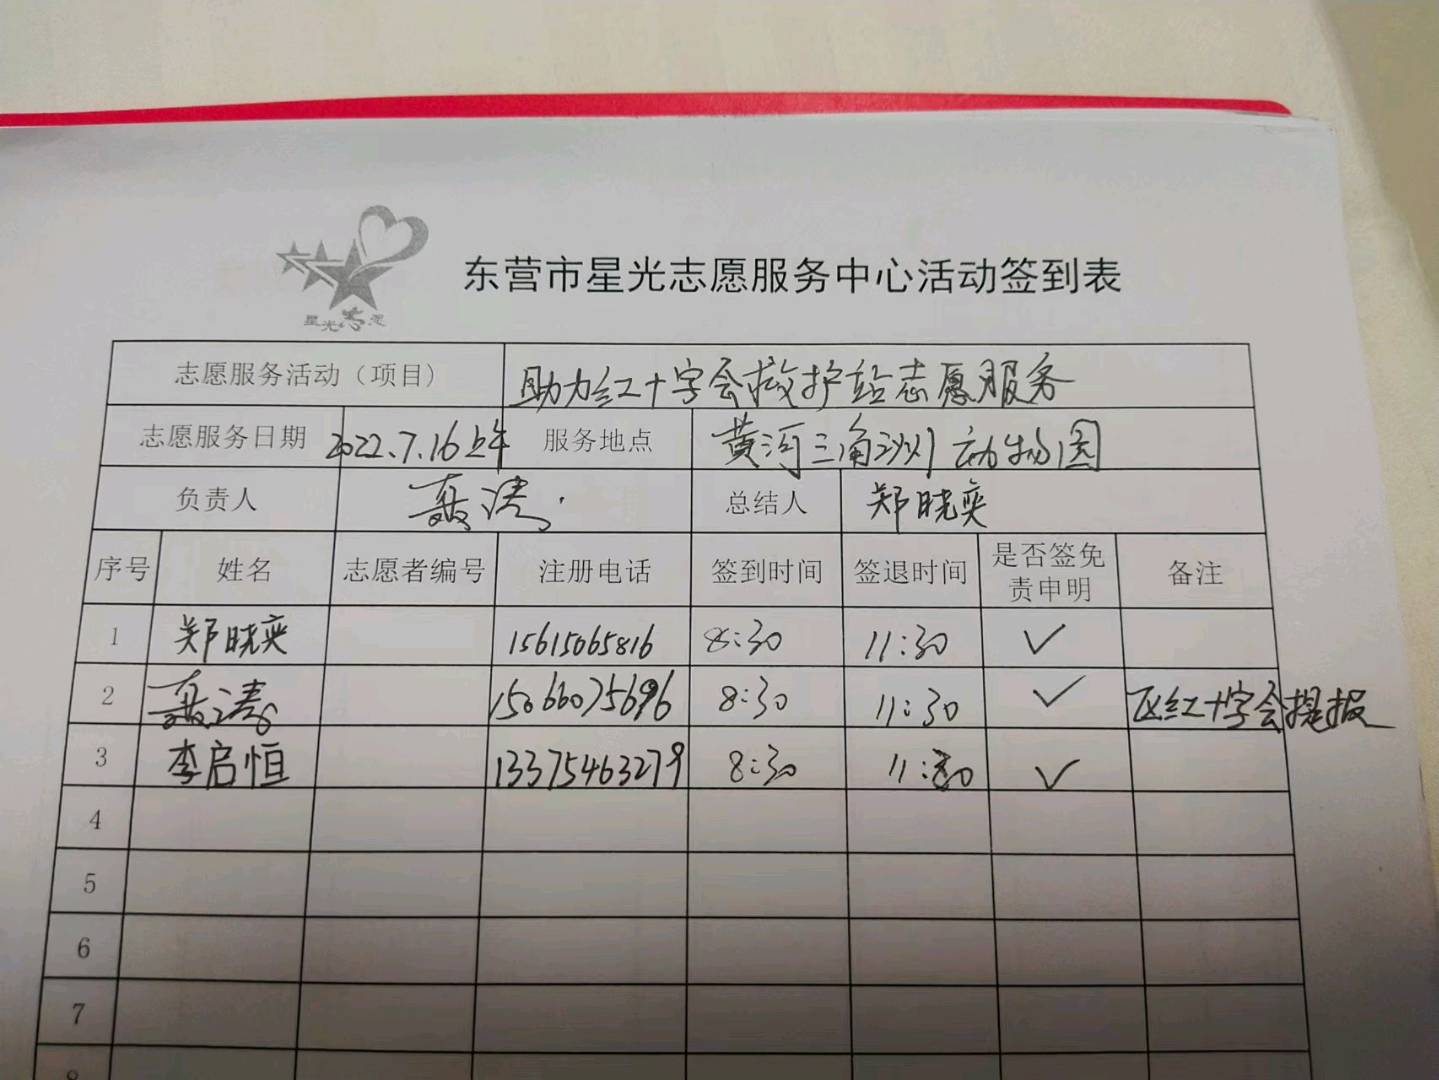 星光志愿
东营市星光志愿服务中心活动签到表
志愿服务活动（项目） 助力红十字会救护站志愿服务
志愿服务日期 2022.7.16上午 服务地点 黄河三角洲动物园
负责人 聂涛 总结人 郑晓奕
序号 姓名 志愿者编号 注册电话 签到时间 签退时间 是否签免责申明 备注
1 郑晓奕 15615065816 8:30 11:30 ✓
2 聂涛 15066075696 8:30 11:30 ✓ 区红十字会提报
3 李启恒 13375463279 8:30 11:30 ✓
4
5
6
7
8